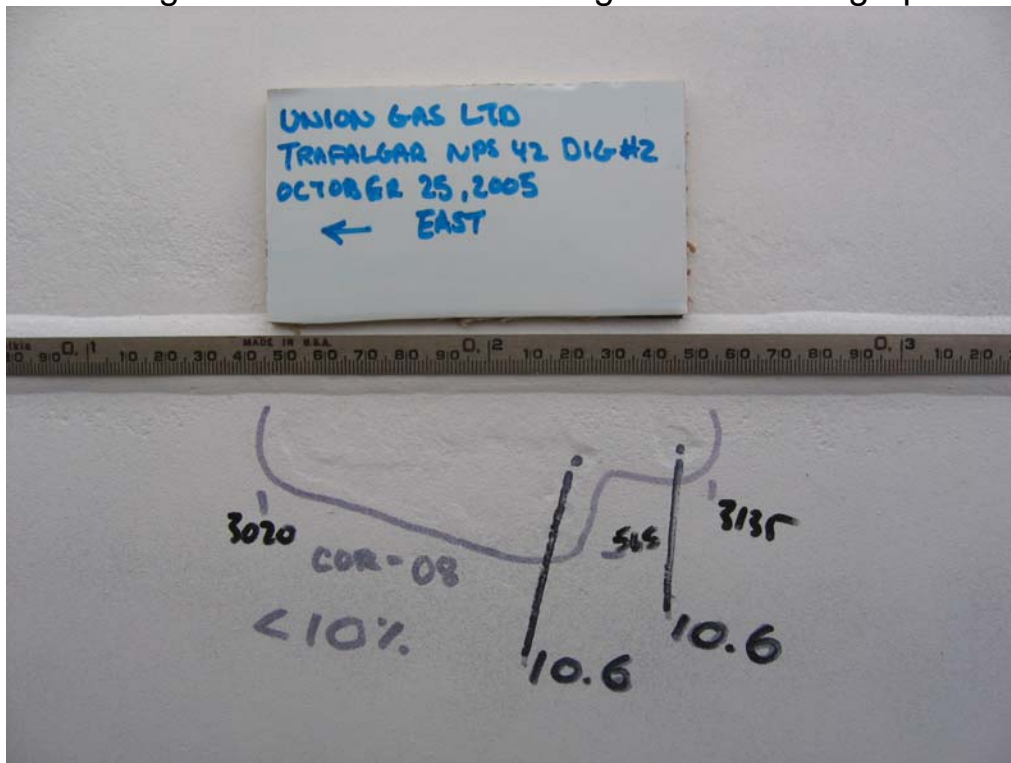 UNION GAS LTD
TRAFALGAR NPS 42 DIG #2
OCTOBER 25, 2005
← EAST
MADE IN U.S.A.
90 0,1 10 20 30 40 50 60 70 80 90 0,2 10 20 30 40 50 60 70 80 90 0,3 10 20
3020
COR-08
<10%
10.6
10.6
3135